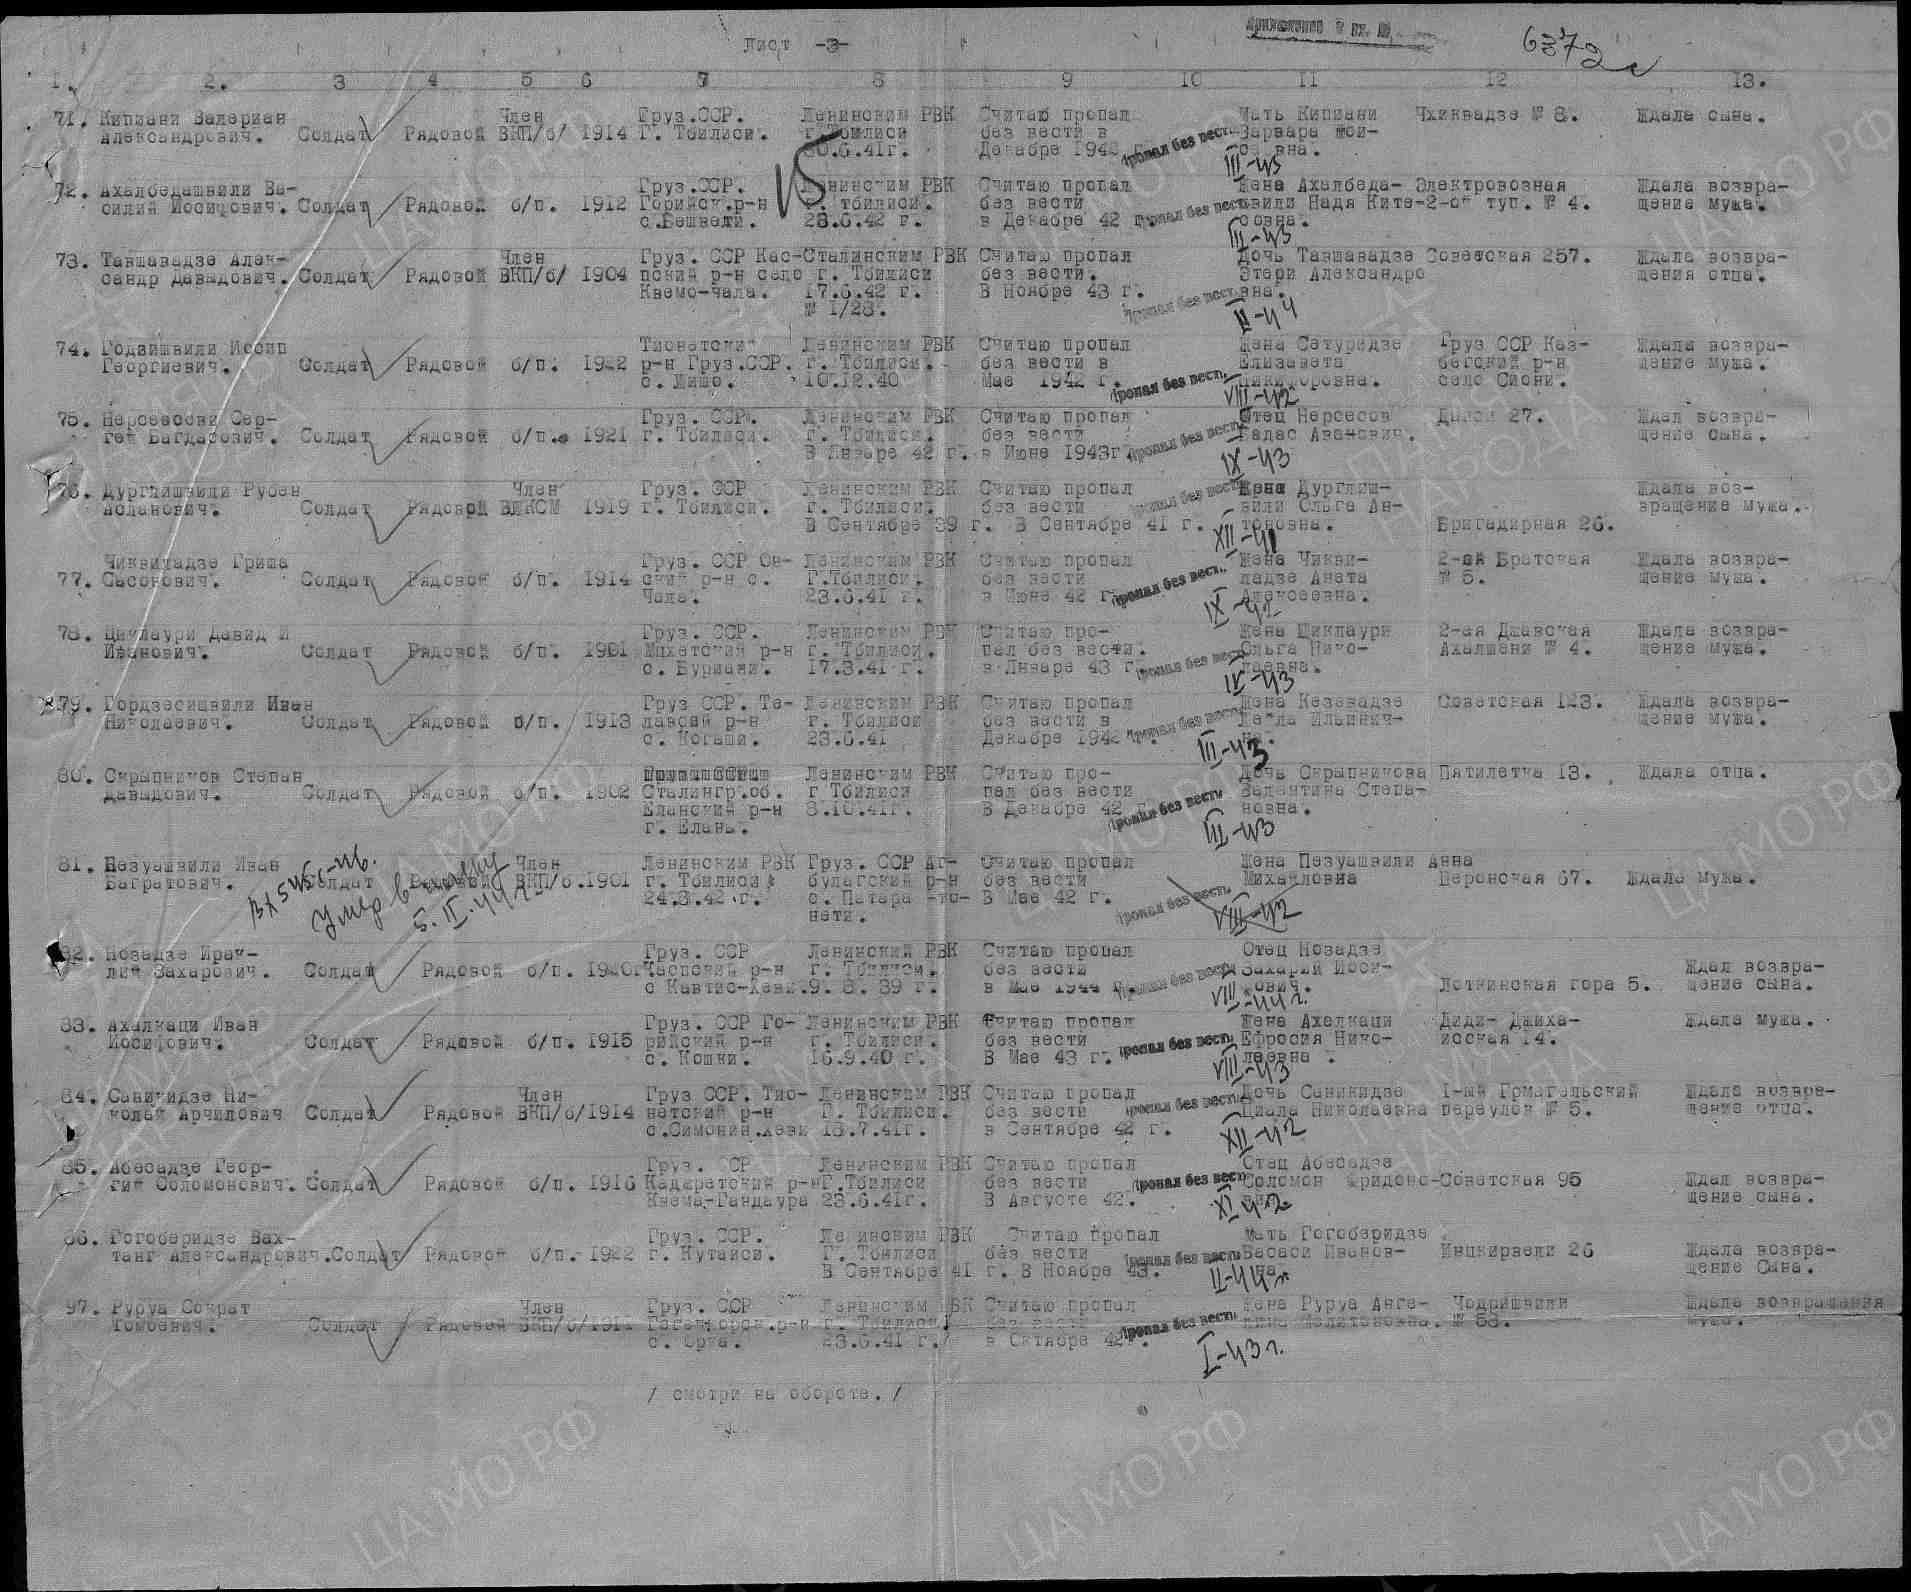 Лист -3-
6372с
1. 2. 3 4 5 6 7 8 9 10 11 12 13.
71. Кипиани Валериан Член Груз.ССР. Ленинским РВК Считаю пропал Мать Кипиани Чхиквадзе № 8. Ждала сына.
Александрович. Солдат Рядовой ВКП/б/ 1914 Г. Тбилиси. г. Тбилиси без вести в Пропал без вести Варвара
30.6.41г. Декабре 1942 г.
III-43
72. Ахалбедашвили Ва- Груз.ССР. Ленинским РВК Считаю пропал Жена Ахалбеда- Электровозная Ждала возвра-
силий Иосифович. Солдат Рядовой б/п. 1912 Горийск.р-н Тбилиси. без вести Пропал без вести швили Надя Ките- 2-ой туп. № 4. щение мужа.
с.Вешвели. 28.6.42 г. в Декабре 42 г. совна.
III-43
73. Тавшавадзе Алек- Член Груз. ССР Кас- Сталинским РВК Считаю пропал Дочь Тавшавадзе Советская 257. Ждала возвра-
сандр Давыдович. Солдат Рядовой ВКП/б/ 1904 пский р-н село г. Тбилиси без вести. Этери Александро щения отца.
Квемо-Чала. 17.6.42 г. В Ноябре 43 г. Пропал без вести вна.
№ 1/28. II-44
74. Годзишвили Иосип Тионетски Ленинским РВК Считаю пропал Жена Сатуридзе Груз ССР Каз- Ждала возвра-
Георгиевич. Солдат Рядовой б/п. 1922 р-н Груз.ССР. г. Тбилиси. без вести в Елизавета бегский р-н щение мужа.
с. 10.12.40 Мае 1942 г. Пропал без вести Никифоровна. село Сиони.
VIII-42
75. Нерсесови Сер- Груз. ССР. Ленинским РВК Считаю пропал Отец Нерсесов 27. Ждал возвра-
гей Багдасович. Солдат Рядовой б/п. 1921 г. Тбилиси. г. Тбилиси. без вести Пропал без вести Аванович. щение сына.
В Январе 42 г. в Июне 1943г.
IX-43
76. Дурглишвили Рубен Член Груз. ССР Ленинским РВК Считаю пропал Пропал без вести Жена Дурглиш- Ждала воз-
Асланович. Солдат Рядовой ВЛКСМ 1919 г. Тбилиси. г. Тбилиси. без вести вили Ольга Ан- вращение мужа.
В Сентябре 39 г. В Сентябре 41 г. тоновна. Бригадирная 26.
XII-41
Чиквиладзе Гриша Груз. ССР Он- Ленинским РВК Считаю пропал Жена Чикви- 2-ая Братская Ждала возвра-
77. Сасонович. Солдат Рядовой б/п. 1914 ский р-н с. Г.Тбилиси. без вести Пропал без вести ладзе Анета № 5. щение мужа.
Чала. 23.6.41 г. в Июне 42 г. Алексеевна.
IX-42
78. Циклаури Давид И Груз. ССР. Ленинским РВК Считаю про- Жена Циклаури 2-ая Джавская Ждала возвра-
Иванович. Солдат Рядовой б/п. 1901 Мцхетский р-н г. Тбилиси. пал без вести. Ольга Нико- Ахалшени № 4. щение мужа.
с. Буриани. 17.3.41 г. в Январе 43 г. Пропал без вести лаевна.
IV-43
79. Гордзесишвили Иван Груз ССР. Те- Ленинским РВК Считаю пропал Жена Кезевадзе Советская 123. Ждала возвра-
Николаевич. Солдат Рядовой б/п. 1913 лавский р-н г. Тбилиси без вести в Пропал без вести Ильинич- щение мужа.
с. Когаши. 23.6.41 Декабре 1942 г. на.
III-43
80. Скрыпников Степан Ленинским РВК Считаю про- Дочь Скрыпникова Пятилетка 13. Ждала отца.
Давыдович. Солдат Рядовой б/п. 1902 Сталингр.об. г Тбилиси пал без вести Пропал без вести Валентина Степа-
Еланский р-н 8.10.41г. В Декабре 42 г. новна.
г. Елань. III-43
81. Пезуашвили Иван Член Ленинским РВК Груз. ССР Аг- Считаю пропал Жена Пезуашвили Анна
Багратович. Солдат Рядовой ВКП/б.1901 г. Тбилиси. булагский р-н без вести Михайловна Перонская 67. Ждала мужа.
24.3.42 г. с. Патара -то- В Мае 42 г. Пропал без вести
нети. VIII-42
Умер в плену
5.II.44
82. Нозадзе Ирак- Груз. ССР Ленинский РВК Считаю пропал Отец Нозадзе
лий Захарович. Солдат Рядовой б/п. 1920г Каспский р-н г. Тбилиси. без вести Пропал без вести Захарий Иоси- Ждал возвра-
с Кавтис-Хеви. 9. 8. 39 г. в Мае 1944 г. фович. Лоткинская гора 5. щение сына.
VIII-44 г.
83. Ахалкаци Иван Груз. ССР Го- Ленинским РВК Считаю пропал Жена Ахалкаци Диди- Джиха- Ждала мужа.
Иосифович. Солдат Рядовой б/п. 1915 рийский р-н г. Тбилиси. без вести Пропал без вести Ефросия Нико- исская 14.
с. Кошки. 16.9.40 г. В Мае 43 г. лаевна.
VIII-43
84. Саникидзе Ни- Член Груз ССР. Тио- Ленинским РВК Считаю пропал Дочь Саникидзе 1-ый Ждала возвра-
колай Арчилович Солдат Рядовой ВКП/б/1914 нетский р-н Г. Тбилиси. без вести Пропал без вести Циала Николаевна переулок № 5. щение отца.
с.Симонин.хеви 13.7.41г. в Сентябре 42 г.
XII-42
85. Абесадзе Геор- Груз. ССР Ленинским РВК Считаю пропал Отец Абесадзе
гий Соломонович. Солдат Рядовой б/п. 1916 р-н Г.Тбилиси без вести Пропал без вести Соломон Фридоно- Советская 95 Ждал возвра-
Квема-Гандаура 23.6.41г. В Августе 42. вич. щение сына.
XI 42
86. Гогоберидзе Вах- Груз. ССР. Ленинским РВК Считаю пропал Мать Гогоберидзе
танг Александрович. Солдат Рядовой б/п. 1922 г. Кутаиси. Г. Тбилиси без вести Пропал без вести Басаси Иванов- 26 Ждала возвра-
В Сентябре 41 г. В Ноябре 43. на щение Сына.
II-44г
97. Руруа Сократ Член Груз. ССР Ленинским РВК Считаю пропал Жена Руруа Анге- Чодришвили Ждала возвращения
Томоевич. Солдат Рядовой ВКП/б/1911 р-н г. Тбилиси без вести Пропал без вести лина Мелитоновна. № 58. мужа.
с. Орка. 23.6.41 г. в Октябре 42г.
I-43г.
/ смотри на обороте. /